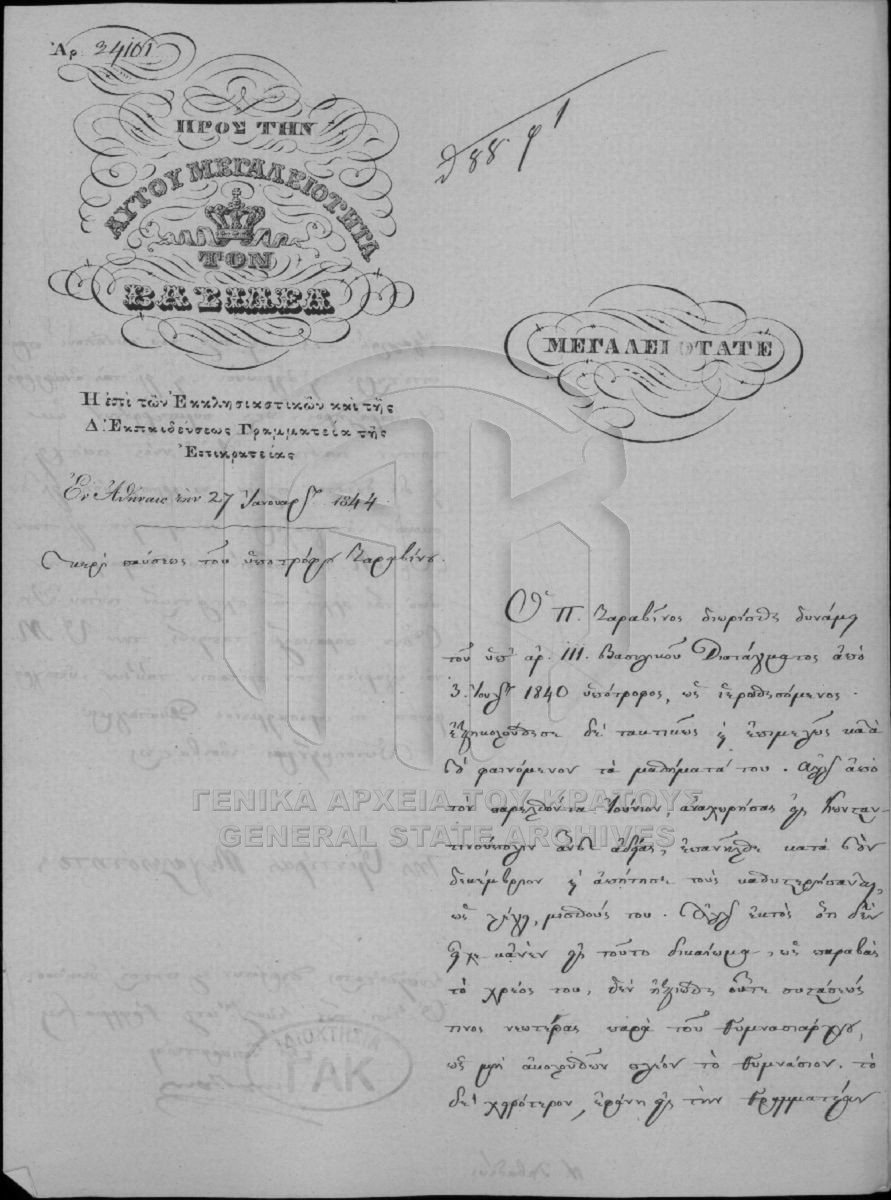 Ἀρ. 24101
ΠΡΟΣ ΤΗΝ
ΑΥΤΟΥ ΜΕΓΑΛΕΙΟΤΗΤΑ
ΤΟΝ
ΒΑΣΙΛΕΑ
ΜΕΓΑΛΕΙΟΤΑΤΕ
Η ἐπὶ τῶν Ἐκκλησιαστικῶν καὶ τῆς
Δ. Ἐκπαιδεύσεως Γραμματεία τῆς
Ἐπικρατείας
Ἐν Ἀθήναις τὴν 27 Ἰανουαρ. 1844.
περὶ παύσεως τοῦ ὑποτρόφου Καραβίνου.
Ὁ Π. Καραβῖνος διωρίσθη δυνάμει
τοῦ ὑπ' ἀρ. 111. Βασιλικοῦ Διατάγματος ἀπὸ
3 Ἰουλ. 1840 ὑπότροφος, ὡς ἱεροθησόμενος.
ἐξηκολούθησε δὲ τακτικῶς ἐπιμελῶς κατὰ
τὸ φαινόμενον τὰ μαθήματά του. Ἀλλ' ἀπὸ
τὸν παρελθόντα Ἰούνιον, ἀναχωρήσας εἰς Κωνσταν-
τινούπολιν ἄνευ ἀδείας, ἐπανῆλθε κατὰ τὸν
δεκέμβριον ἀπῄτησε τοὺς καθυστερήσαντας,
ὡς λέγει, μισθούς του. Ἀλλ' ἐκτὸς ὅτι δὲν
ἔχει κανὲν εἰς τοῦτο δικαίωμα, ὡς παραβὰς
τὸ χρέος του, δὲν ἠξιώθη οὔτε συστάσεώς
τινος νεωτέρας παρὰ τοῦ Γυμνασιάρχου,
ὡς μὴ ἀκολουθῶν πλέον τὸ Γυμνάσιον. τὸ
δὲ χειρότερον, ἐφάνη εἰς τὴν Γραμματείαν
ΓΕΝΙΚΑ ΑΡΧΕΙΑ ΤΟΥ ΚΡΑΤΟΥΣ
GENERAL STATE ARCHIVES
ΙΔΙΟΚΤΗΣΙΑ
ΓΑΚ